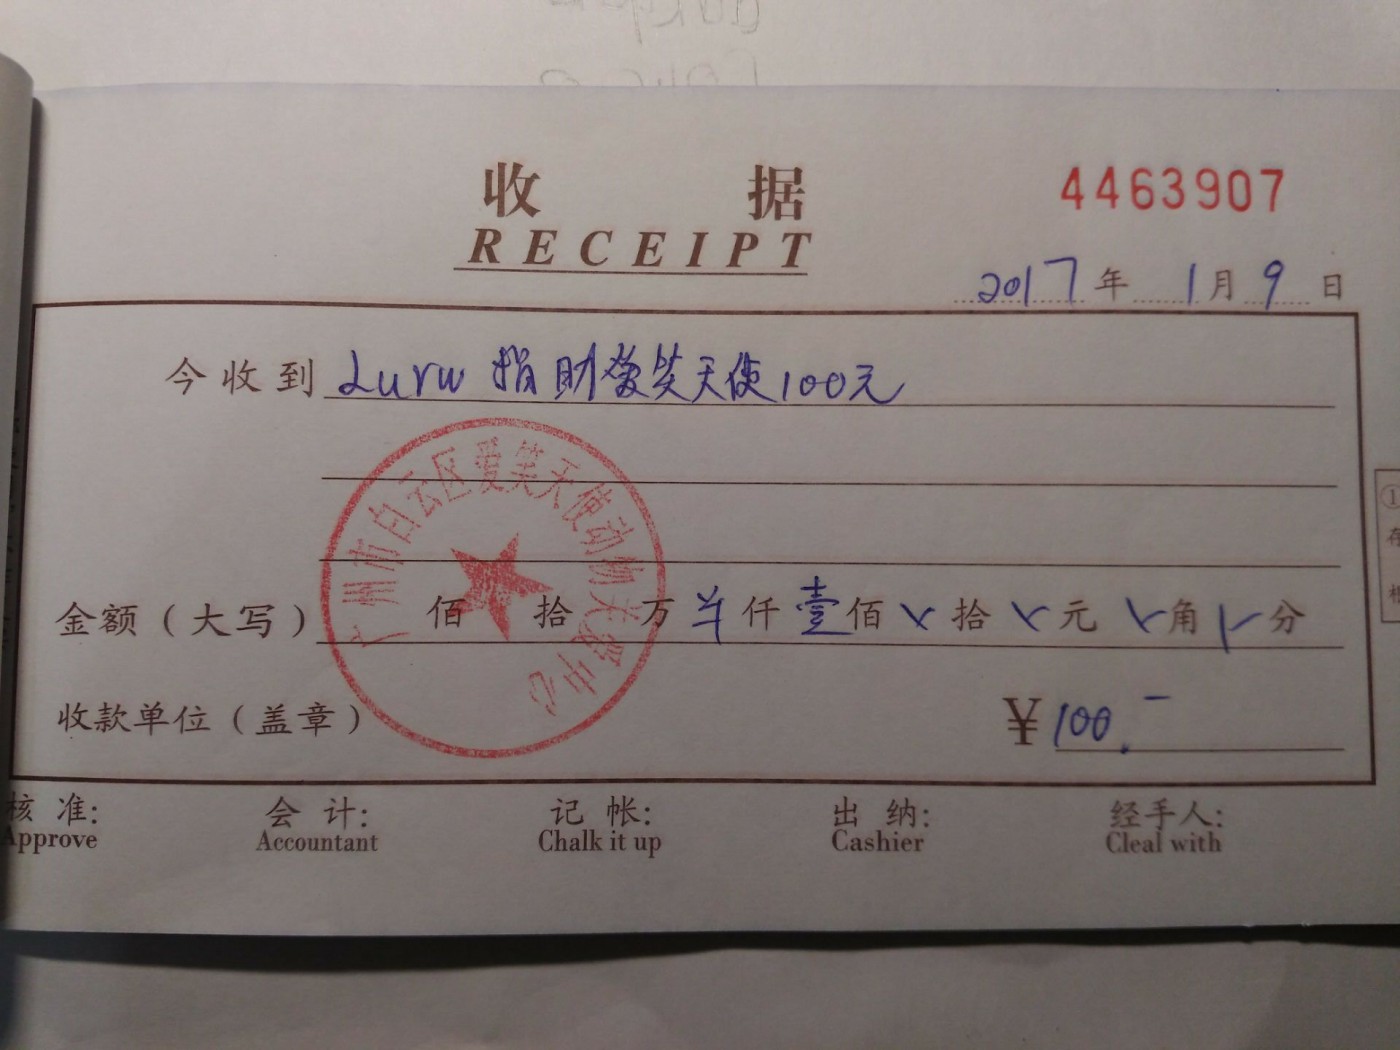 收据
RECEIPT
4463907
2017年1月9日
今收到 Lurw 捐助爱笑天使100元
广州市白云区爱笑天使动物关爱中心
金额(大写) 佰 拾 万 仟 壹佰 拾 元 角 分
收款单位(盖章)
¥100.-
核准: 会计: 记帐: 出纳: 经手人:
Approve Accountant Chalk it up Cashier Cleal with
①
存
根